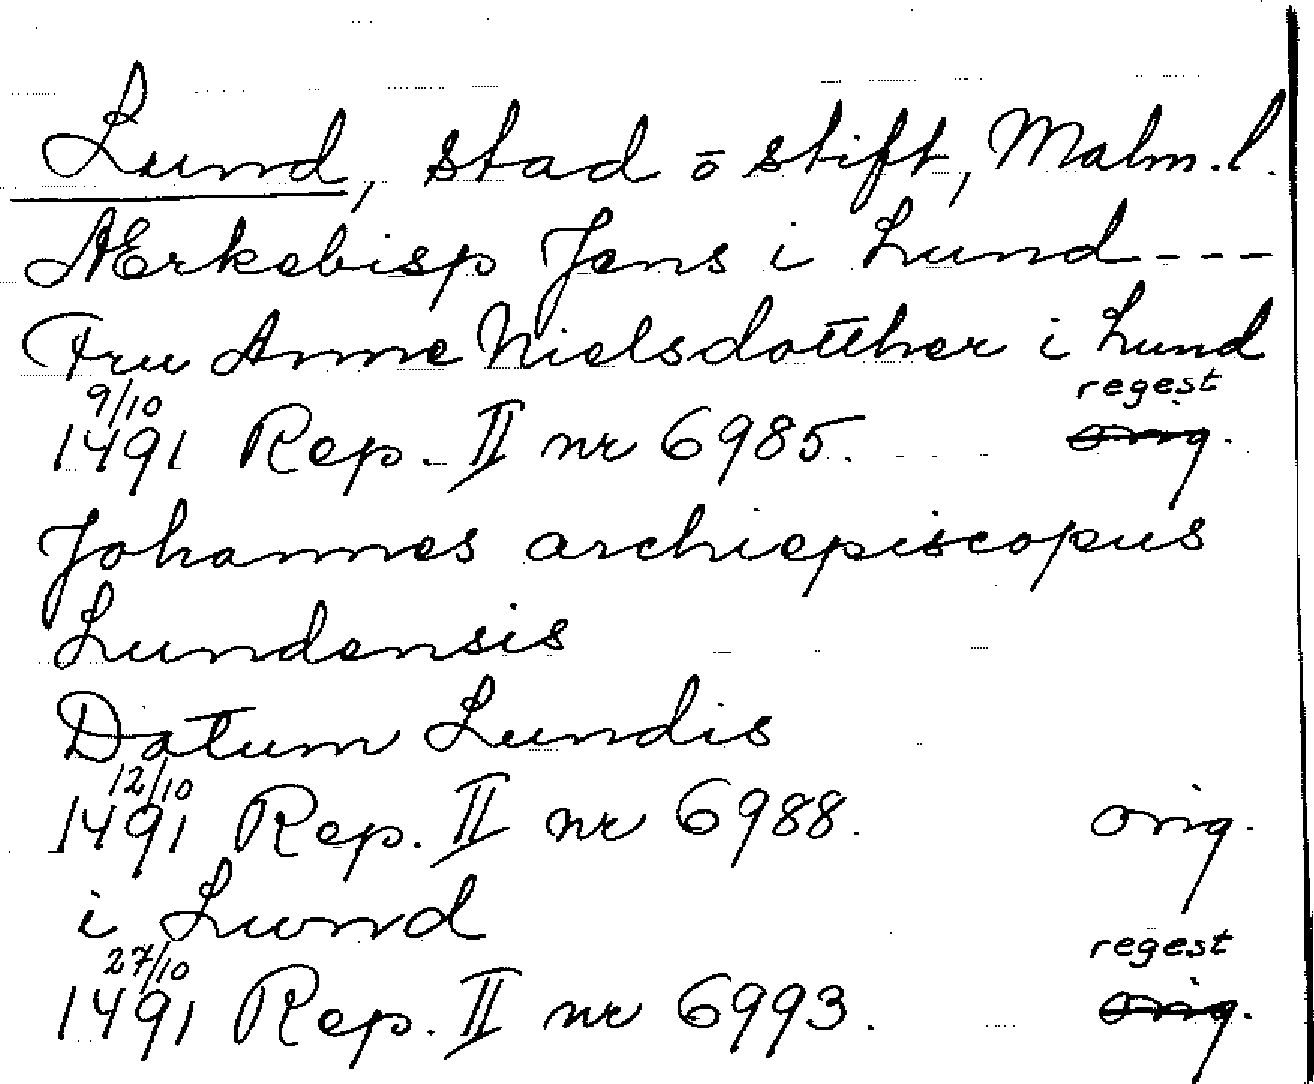 Lund, stad ō stift, Malm.l.
Ærkebisp Jens i Lund---
Fru Anne Nielsdotther i Lund
9/10 regest
1491 Rep. II nr 6985. orig.
Johannes archiepiscopus
Lundensis
Datum Lundis
12/10
1491 Rep. II nr 6988. orig.
i Lund
27/10 regest
1491 Rep. II nr 6993. orig.